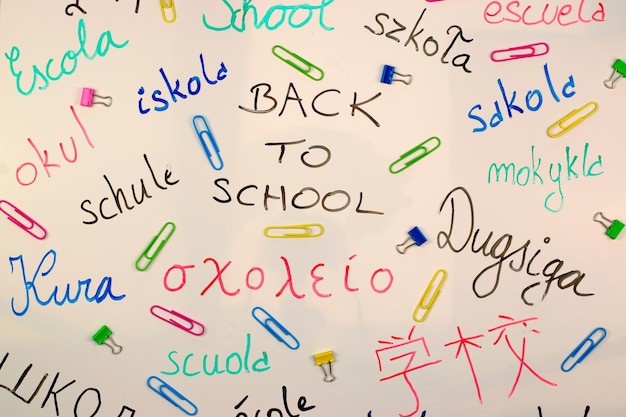 School
escuela
Escola
szkoła
iskola
BACK
TO
SCHOOL
sakola
okul
schule
mokykla
Dugsiga
Kura
σχολείο
学校
scuola
école